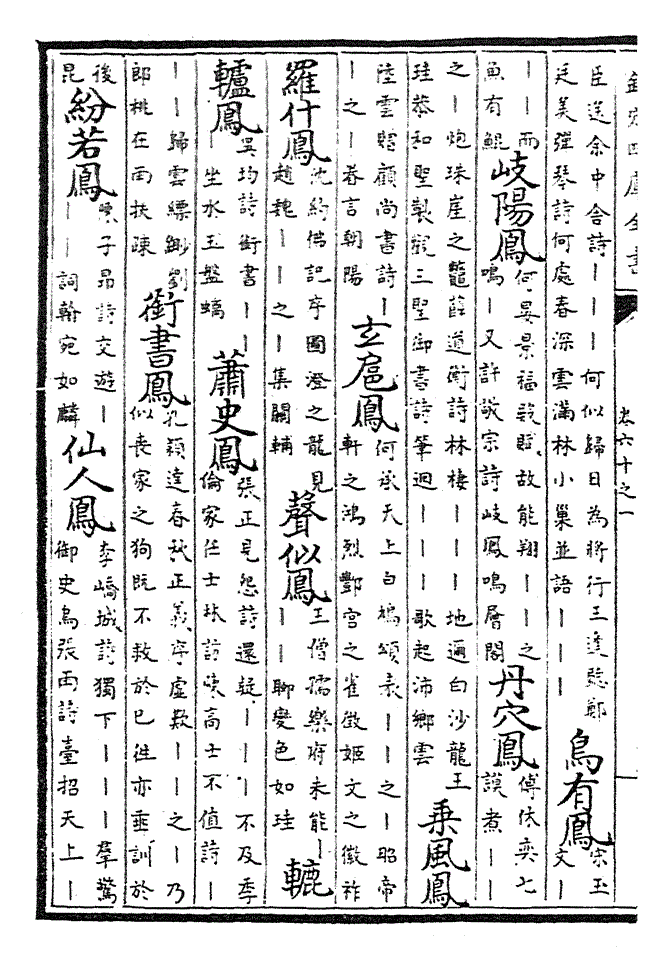 欽定四庫全書 卷六十之一
臣送余中舍詩｜｜｜何似歸日為將行王逢題鄭廷美弹琴詩何處春深雲滿林小巢並語｜｜｜ 鳥有鳳 宋玉文｜
｜｜而魚有鯤 岐陽鳳 何晏景福殿賦故能翔｜｜之鳴｜又許敬宗詩岐鳳鳴層閣 丹穴鳳 傅休奕七謨煮｜｜
之｜炮珠崖之龞薛道衡詩林棲｜｜｜地遍白沙龍王珪恭和聖製觀三聖御書詩筆迴｜｜｜歌起沛鄉雲 乘風鳳
陸雲贈顧尚書詩｜｜之｜眷言朝陽 玄扈鳳 何承天上白鳩頌表｜｜之｜昭帝軒之鴻烈酆宮之雀徵姬文之徽祚
羅什鳳 沈約佛記序圖澄之龍見趙魏｜｜之｜集關輔 聲似鳳 王僧孺樂府未能｜｜｜聊變色如珪 轆
轤鳳 吳均詩銜書｜｜｜坐水玉盤螭 蕭史鳳 張正見怨詩還疑｜｜｜不及季倫家任士林訪陳高士不值詩｜
｜｜歸雲縹緲劉郎桃在雨扶疎 銜書鳳 孔穎達春秋正義序虚歎｜｜之｜乃似喪家之狗既不救於已往亦垂訓於
後昆 紛若鳳 陳子昂詩交遊｜｜｜詞翰宛如麟 仙人鳳 李嶠城詩獨下｜｜｜羣驚御史烏張雨詩臺招天上｜